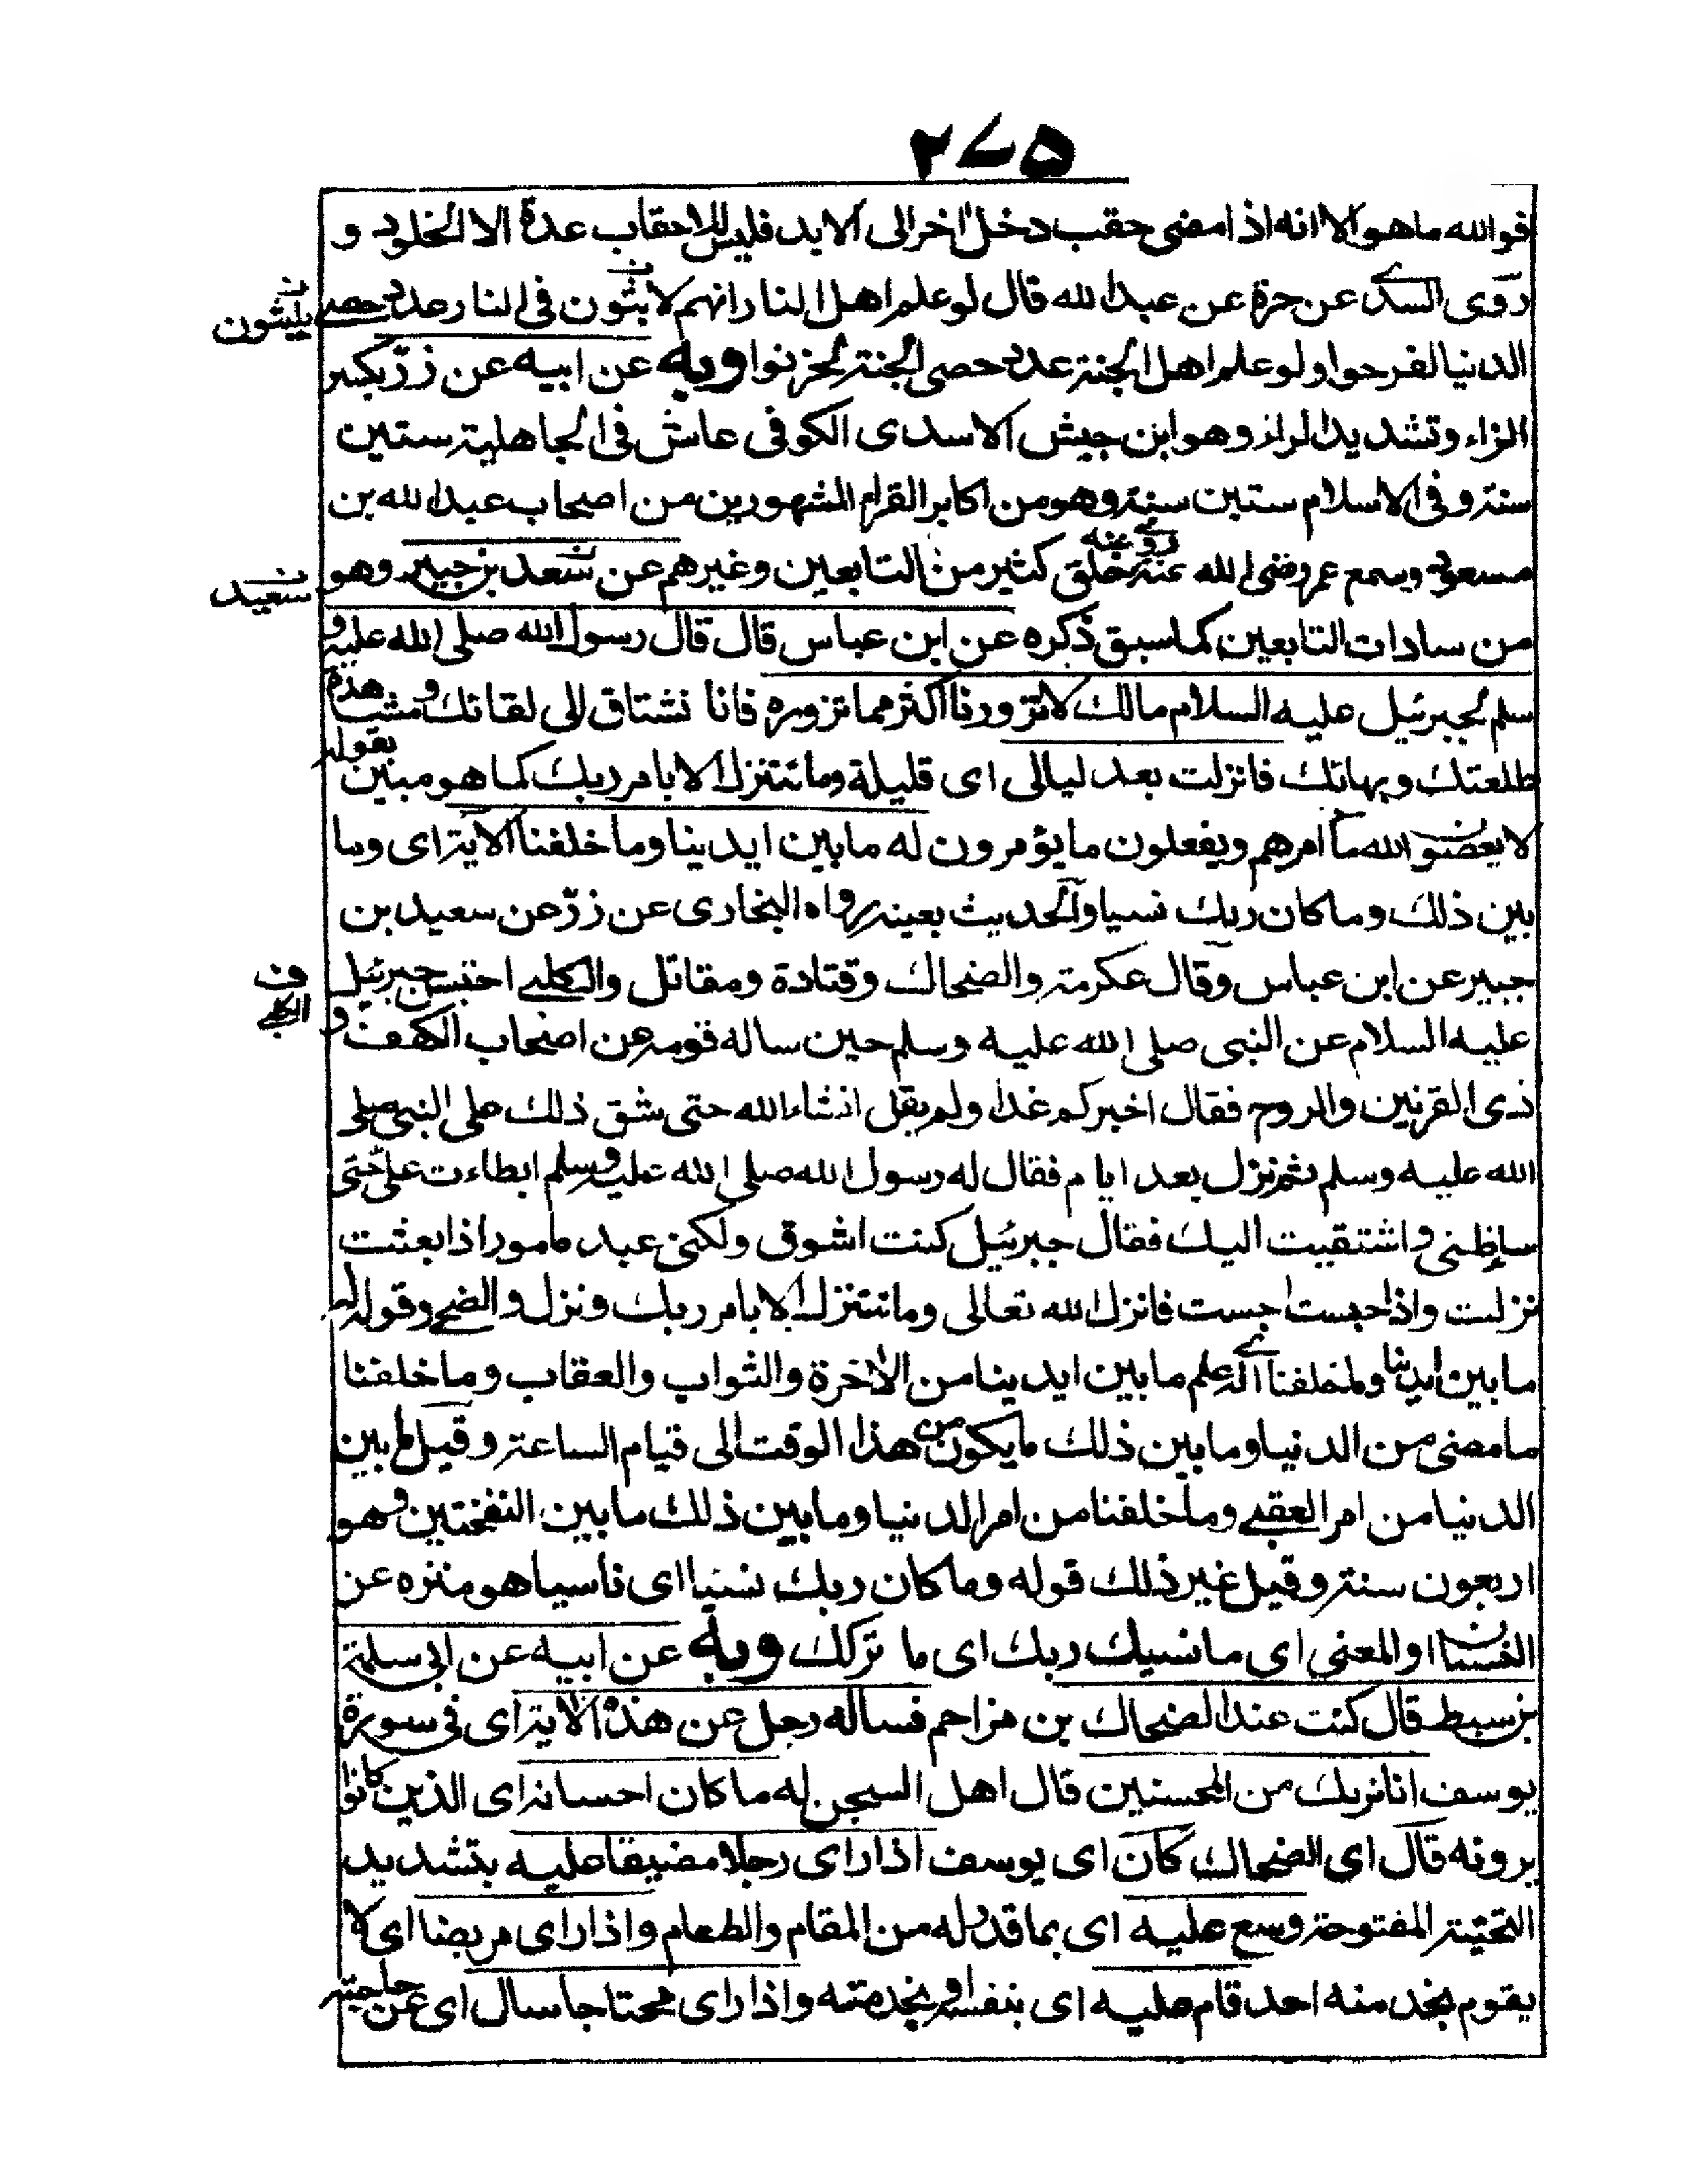 ٢٧٥
فوالله ماهو الا انه اذا مضى حقب دخل اخر الى الابد فليس للاحقاب عدة الا الخلود و
روى السدى عن مرة عن عبد الله قال لو علم اهل النار انهم لا يبثون فى النار عدد حصى
يلبثون
الدنيا لفرحوا ولو علم اهل الجنة عدد حصى الجنة لحزنوا وبه عن ابيه عن زرّ بكسر
الزاء وتشديد الراء وهو ابن حبيش الاسدى الكوفى عاش فى الجاهلية ستين
سنة وفى الاسلام ستين سنة وهو من اكابر القراء المشهورين من اصحاب عبد الله بن
مسعود وسمع عمر رضى الله عنه روى عنه خلق كثير من التابعين وغيرهم عن سعد بن جبير وهو
سعيد
من سادات التابعين كما سبق ذكره عن ابن عباس قال قال رسول الله صلى الله عليه و
سلم لجبرئيل عليه السلام مالك لا تزورنا اكثر مما تزوره فانا نشتاق الى لقائك ومشاهدة
طلعتك وبهائك فانزلت بعد ليالى اى قليلة وما نتنزل الا بامر ربك كما هو مبين بقوله
لا يعصون الله ما امرهم ويفعلون ما يؤمرون له ما بين ايدينا وما خلفنا الآية اى وما
بين ذلك وما كان ربك نسيا والحديث بعينه رواه البخارى عن زرّ عن سعيد بن
جبير عن ابن عباس وقال عكرمة والضحاك وقتادة ومقاتل والكلبى احتبس جبرئيل
ف الكلبى
عليه السلام عن النبى صلى الله عليه وسلم حين ساله قومه عن اصحاب الكهف و
ذى القرنين والروح فقال اخبركم غدا ولم يقل انشاء الله حتى شق ذلك على النبى صلى
الله عليه وسلم ثم نزل بعد ايام فقال له رسول الله صلى الله عليه وسلم ابطاءت علىّ حتى
ساء ظنى واشتقيت اليك فقال جبرئيل كنت اشوق ولكنى عبد مامور اذا بعثت
نزلت واذا حبست احبست فانزل الله تعالى وما نتنزل الا بامر ربك ونزل والضحى وقوله له
ما بين ايدينا وما خلفنا اى له علم ما بين ايدينا من الاخرة والثواب والعقاب وما خلفنا
ما مضى من الدنيا وما بين ذلك ما يكون من هذا الوقت الى قيام الساعة وقيل ما بين
الدنيا من امر العقبى وما خلفنا من امر الدنيا وما بين ذلك ما بين النفختين وهو
اربعون سنة وقيل غير ذلك قوله وما كان ربك نسيا اى ناسيا هو منزه عن
النسيان او المعنى اى ما نسيك ربك اى ما تركك وبه عن ابيه عن ابى سلمة
بن سبط قال كنت عند الضحاك بن مزاحم فساله رجل عن هذه الاية اى فى سورة
يوسف انا نريك من المحسنين قال اهل السجن له ما كان احسانه اى الذين كانوا
يرونه قال اى الضحاك كان اى يوسف اذا راى رجلا مضيقا عليه بتشديد
التحتية المفتوحة وسع عليه اى بما قدر له من المقام والطعام واذا راى مريضا اى لا
يقوم بخدمته احد قام عليه اى بنفسه او بخدمته واذا راى محتاجا سال اى عن حاجته